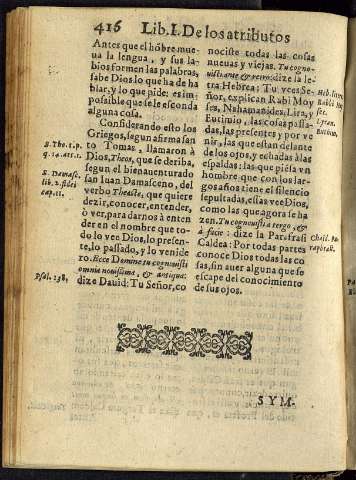 416 Lib. I. De los atributos
Antes que el hõbre mue-
ua la lengua, y sus la-
bios formen las palabras,
sabe Dios lo que ha de ha
blar, y lo que pide: es im-
possible que se le esconda
alguna cosa.
Considerando esto los
Griegos, segun afirma san
to Tomas, llamaron à
Dios, Theos, que se deriba,
segun el bienauenturado
san Iuan Damasceno, del
verbo Theaste, que quiere
dezir, conocer, entender,
ò ver, para darnos à enten
der en el nombre que to-
do lo vee Dios, lo presen-
te, lo passado, y lo venide
ro. Ecce Domine tu cognouisti
omnia nouissima, & antiqua:
dize Dauid: Tu Señor, co
S. Tho. 1. p.
q. 14. art. 1.
S. Damasc.
lib. 2. fidei
cap. 11.
Psal. 138.
nociste todas las cosas
nueuas y viejas. Tu cogno-
uisti ante & retro: dize la le-
tra Hebrea; Tu vees Se-
ñor, explican Rabi Moy
ses, Nahamanides, Lira, y
Eutimio, las cosas passa-
das, las presentes, y por ve
nir, las que estan delante
de los ojos, y echadas à las
espaldas: las que piẽsa vn
hombre que con los lar-
gos años tiene el silencio
sepultadas, essas vee Dios,
como las que agora se ha
zen. Tu cognouisti a tergo, &
à facie: dize la Parafrasi
Caldea: Por todas partes
conoce Dios todas las co
sas, sin auer alguna que se
escape del conocimiento
de sus ojos.
Heb. litte.
Rabi Moy
ses.
Lyran.
Eutim.
Chald. Pa-
raphras.
SYM-